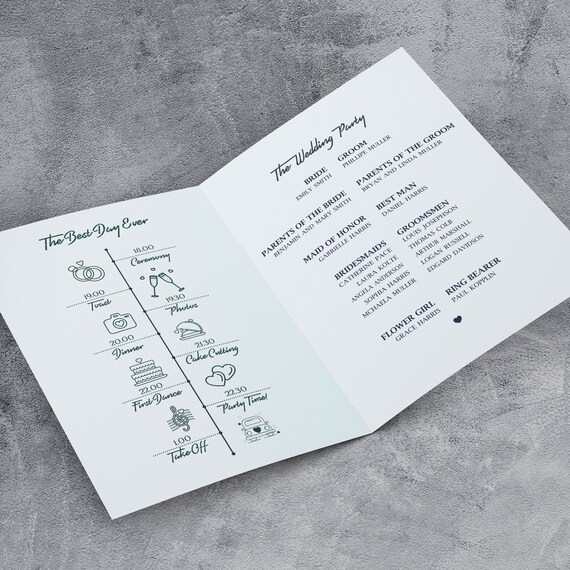 The Best Day Ever
18.00
Ceremony
19.00
Toast
19.30
Photos
20.00
Dinner
21.30
Cake Cutting
22.00
First Dance
22.30
Party Time!
1.00
Take Off
The Wedding Party
BRIDE
EMILY SMITH
GROOM
PHILLIPE MULLER
PARENTS OF THE BRIDE
BENJAMIN AND MARY SMITH
PARENTS OF THE GROOM
BRYAN AND LINDA MULLER
MAID OF HONOR
GABRIELLE HARRIS
BEST MAN
DANIEL HARRIS
BRIDESMAIDS
CATHERINE PACE
LAURA KOLTE
ANGELA ANDERSON
SOPHIA HARRIS
MCHAELA MULLER
GROOMSMEN
LOUIS JOSEPHSON
THOMAS COLB
ARTHUR MARSHALL
LOGAN RUSSELL
EDGARD DAVIDSON
FLOWER GIRL
GRACE HARRIS
RING BEARER
PAUL KOPPLIN